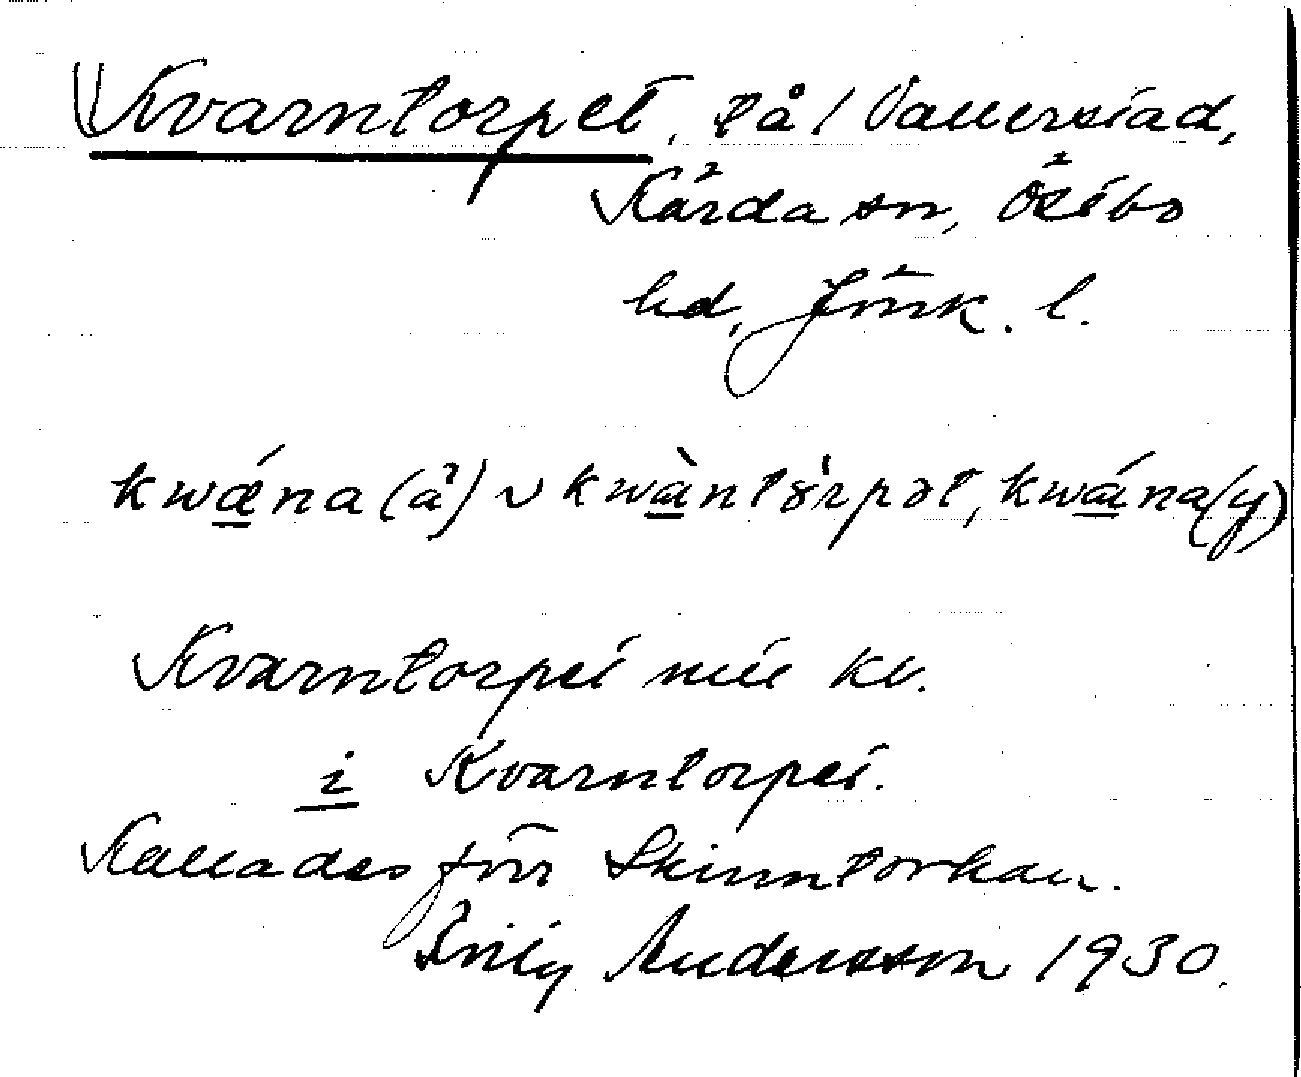 Kvarntorpet, på / Vallerstad,
Kärda sn, Östbo
hd, Jönk. l.
kwǽna (å) ~ kwàntòrpət, kwána (y)
Kvarntorpet utie kv.
i Kvarntorpet.
Kallades förr Skinntorkan.
Emily Andersson 1930.